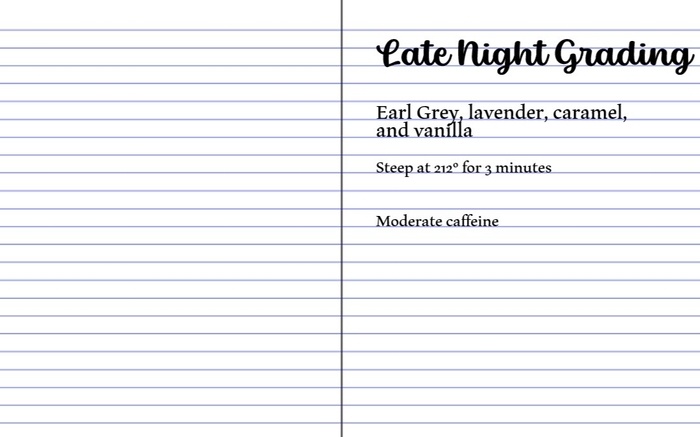 Late Night Grading
Earl Grey, lavender, caramel,
and vanilla
Steep at 212° for 3 minutes
Moderate caffeine